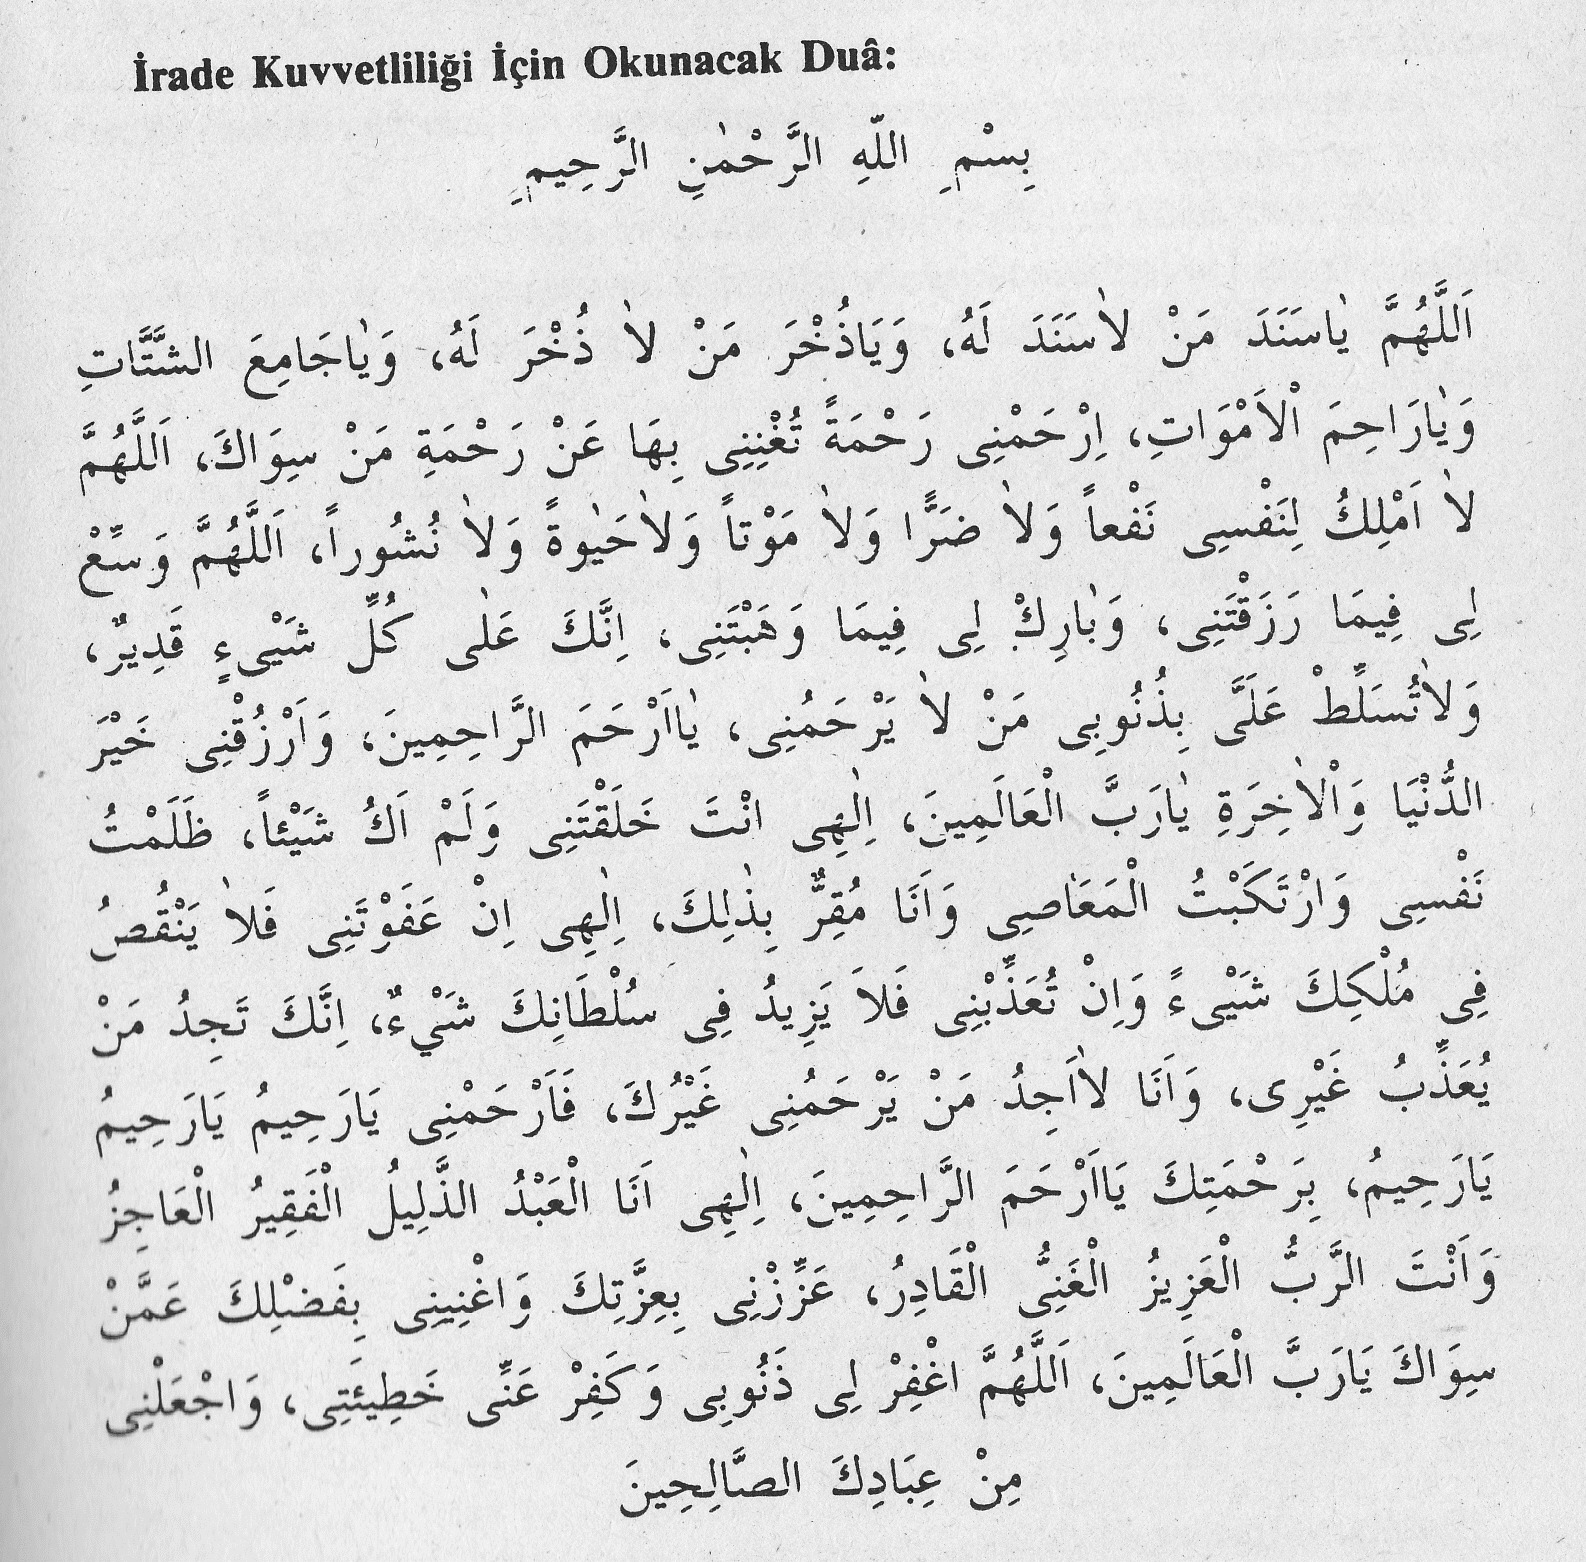 İrade Kuvvetliliği İçin Okunacak Duâ:
بِسْمِ اللّٰهِ الرَّحْمٰنِ الرَّحِيمِ
اَللَّهُمَّ يٰاسَنَدَ مَنْ لاٰسَنَدَ لَهُ، وَيَاذُخْرَ مَنْ لاٰ ذُخْرَ لَهُ، وَيٰاجَامِعَ الشَّتَّاتِ
وَيٰارَاحِمَ اْلاَمْوَاتِ، اِرْحَمْنِى رَحْمَةً تُغْنِنِى بِهَا عَنْ رَحْمَةِ مَنْ سِوَاكَ، اَللَّهُمَّ
لاٰ اَمْلِكُ لِنَفْسِى نَفْعاً وَلاٰ ضَرًّا وَلاٰ مَوْتاً وَلاٰحَيٰوةً وَلاٰ نُشُوراً، اَللَّهُمَّ وَسِّعْ
لِى فِيمَا رَزَقْتَنِى، وَبٰارِكْ لِى فِيمَا وَهَبْتَنِى، اِنَّكَ عَلٰى كُلِّ شَيْىءٍ قَدِيرٌ،
وَلاٰتُسَلِّطْ عَلَىَّ بِذُنُوبِى مَنْ لاٰ يَرْحَمُنِى، يٰااَرْحَمَ الرَّاحِمِينَ، وَاَرْزُقْنِى خَيْرَ
الدُّنْيَا وَاْلاٰخِرَةِ يٰارَبَّ الْعَالَمِينَ، اِلٰهِى انْتَ خَلَقْتَنِى وَلَمْ اَكُ شَيْئاً، ظَلَمْتُ
نَفْسِى وَارْتَكَبْتُ الْمَعَاصِى وَاَنَا مُقِرٌّ بِذٰلِكَ، اِلٰهِى اِنْ عَفَوْتَنِى فَلاٰ يَنْقُصُ
فِى مُلْكِكَ شَيْىءً وَاِنْ تُعَذِّبْنِى فَلاَ يَزِيدُ فِى سُلْطَانِكَ شَيْءٌ، اِنَّكَ تَجِدُ مَنْ
يُعَذِّبُ غَيْرِى، وَاَنَا لاٰاَجِدُ مَنْ يَرْحَمُنِى غَيْرُكَ، فَاَرْحَمْنِى يَارَحِيمُ يَارَحِيمُ
يَارَحِيمُ، بِرَحْمَتِكَ يَااَرْحَمَ الرَّاحِمِينَ، اِلٰهِى اَنَا الْعَبْدُ الذَّلِيلُ الْفَقِيرُ الْعَاجِزُ
وَاَنْتَ الرَّبُّ الْعَزِيزُ الْغَنِىُّ الْقَادِرُ، عَزِّزْنِى بِعِزَّتِكَ وَاغْنِينِى بِفَضْلِكَ عَمَّنْ
سِوَاكَ يَارَبَّ الْعَالَمِينَ، اَللَّهُمَّ اغْفِرْ لِى ذَنُوبِى وَكَفِرْ عَنِّى خَطِيئَتِى، وَاجْعَلْنِى
مِنْ عِبَادِكَ الصَّالِحِينَ